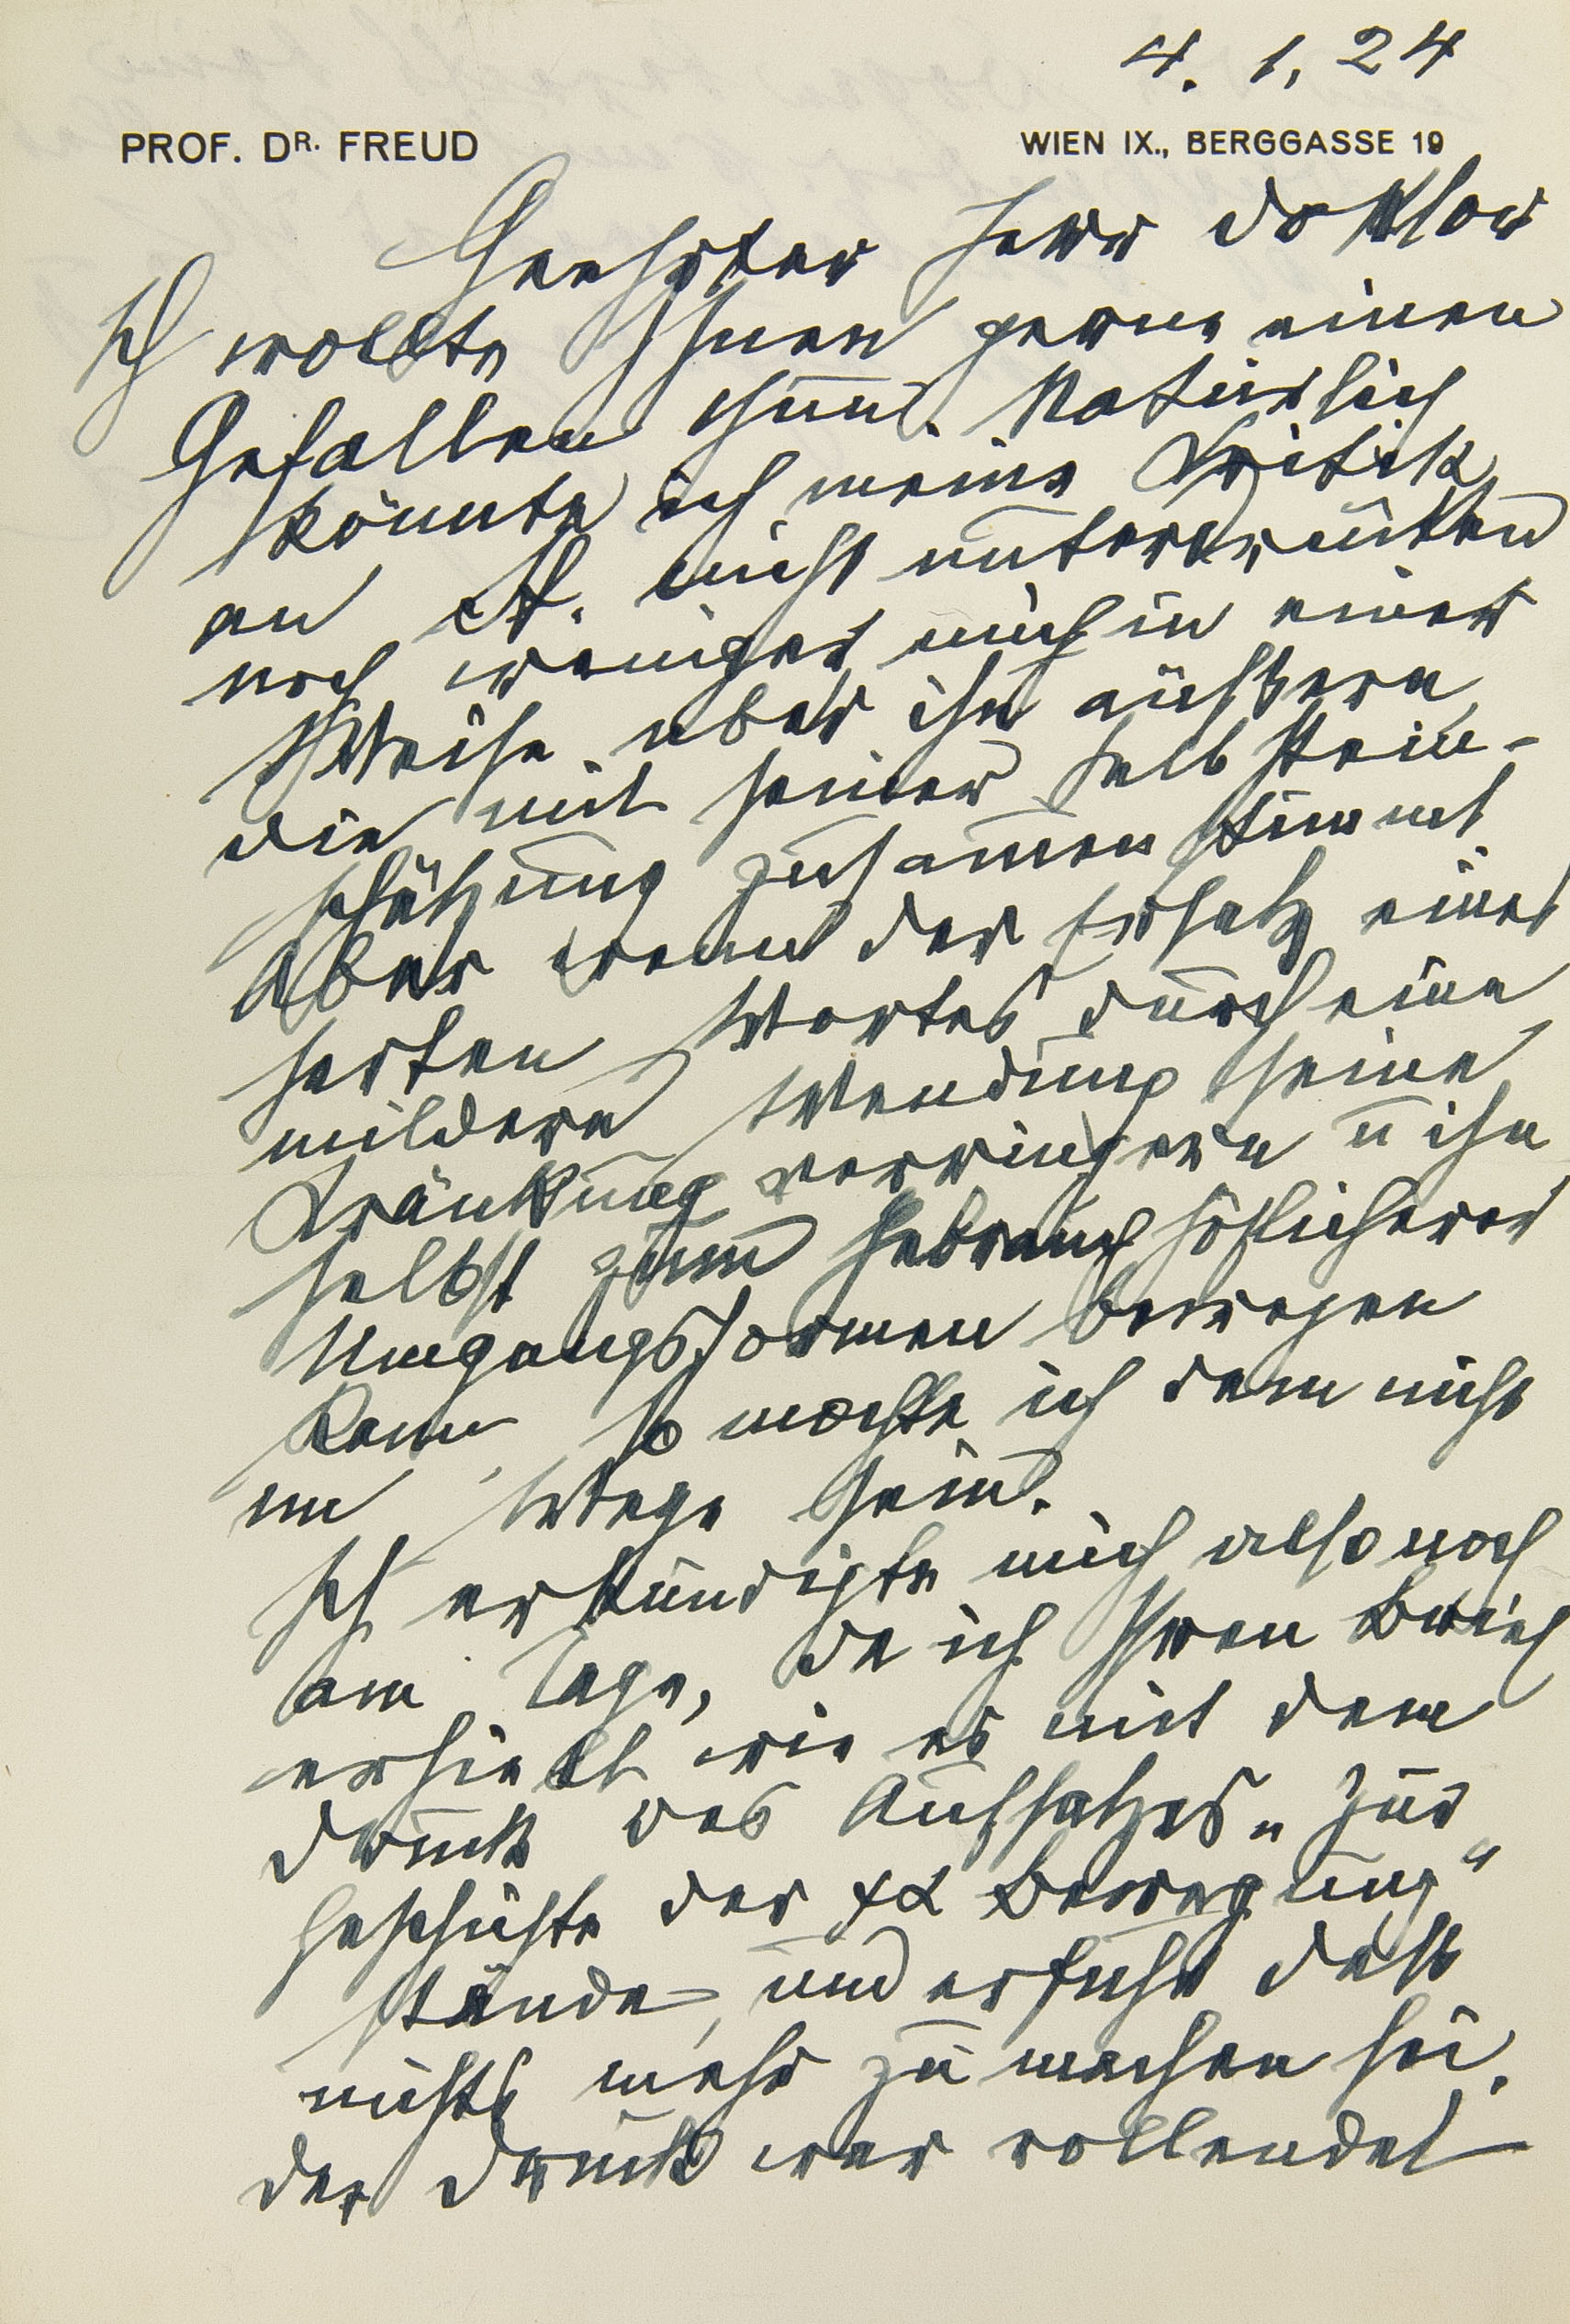 4. 1. 24
PROF. DR. FREUD WIEN IX., BERGGASSE 19
Geehrter Herr Doktor
Ich wollte Ihnen gerne einen
Gefallen thun. Natürlich
könnte ich meine Kritik
an A. nicht unterdrücken
noch weniger mich in einer
Weise über ihn äußern,
die mit seiner Selbstein-
schätzung zusammenstimmt.
Aber wenn der Ersatz eines
harten Wortes durch eine
mildere Wendung seine
Kränkung verringern u ihn
selbst zum Gebrauch höflicherer
Umgangsformen bewegen
kann, so mochte ich dem nicht
im Wege sein.
Ich erkundigte mich also noch
am Tage, da ich Ihren Brief
erhielt wie es mit dem
Druck des Aufsatzes „Zur
Geschichte der ψα Bewegung“
stände, und erfuhr daß
nichts mehr zu machen sei.
der Druck war vollendet